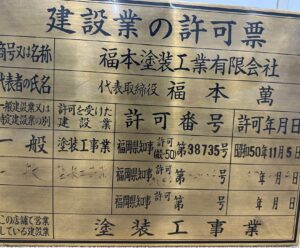 建設業の許可票
商号又は名称 福本塗装工業有限会社
代表者の氏名 代表取締役 福本 萬
一般建設業又は特定建設業の別 許可を受けた建設業 許可番号 許可年月日
一般 塗装工事業 福岡県知事 許可(般-50)第38735号 昭和50年11月5日
福岡県知事 許可 第 号 年 月 日
福岡県知事 許可 第 号 年 月 日
この店舗で営業している建設業 塗装工事業